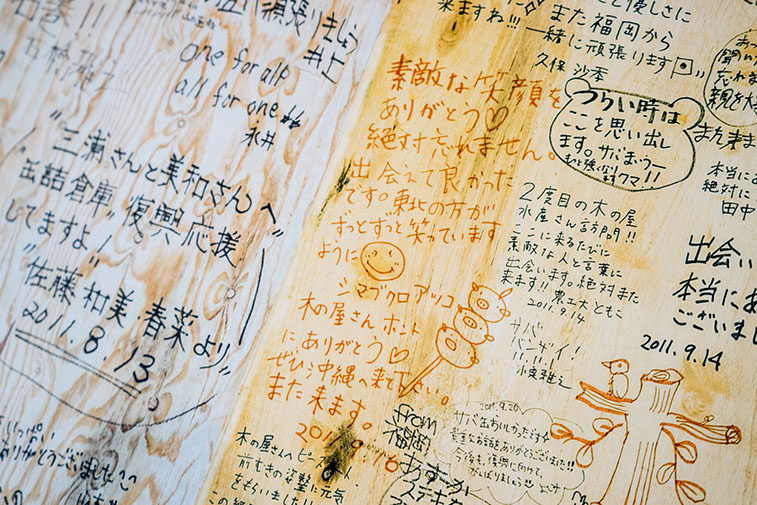 頑張りましょう
井上
one for all
all for one
永井
"三浦さんと美和さんへ
缶詰倉庫"復興応援
してますよ!
"佐藤 知美 春菜より"
2011.8.13
ありがとうございました
素敵な笑顔を
ありがとう♡
絶対忘れません。
出会えて良かった
です。東北の方が
ずっとずっと笑っています
ように
シマブクロアツコ
木の屋さんホント
にありがとう♡
ぜひ沖縄へ来て下さい。
また来ます。
2011.9.16
木の屋さんへ
前むきの姿勢に元気
をもらいました!!
来ますね!!!
優しさに
また福岡から
一緒に頑張ります
久保 沙季
つらい時は
ここを思い出し
ます。サバまっうー!!
もっと強くなりクマ!
2度目の木の屋
水産さん訪問!!
ここに来るたびに
素敵な人と言葉に
出会います。絶対また
来ます!! 農工大 ともこ
2011.9.14
サバ
バンザイ!
11.11.
from
福岡
あすか
ステキな
2011.9.20
サバ缶おいしかったです
貴重なお話ありがとうございました!!
今後も、復興に向けて、
がんばりましょう!!
忘れま
親を大
また来ま
本当にお
絶対に
田中
出会い
本当にあ
ございまし
2011.9.14